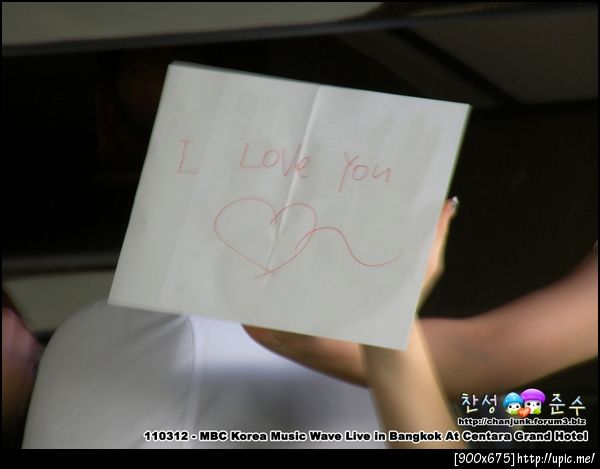 I Love You
찬성 준수
http://chanjunk.forum3.biz
110312 - MBC Korea Music Wave Live in Bangkok At Centara Grand Hotel
[900x675]http://upic.me/